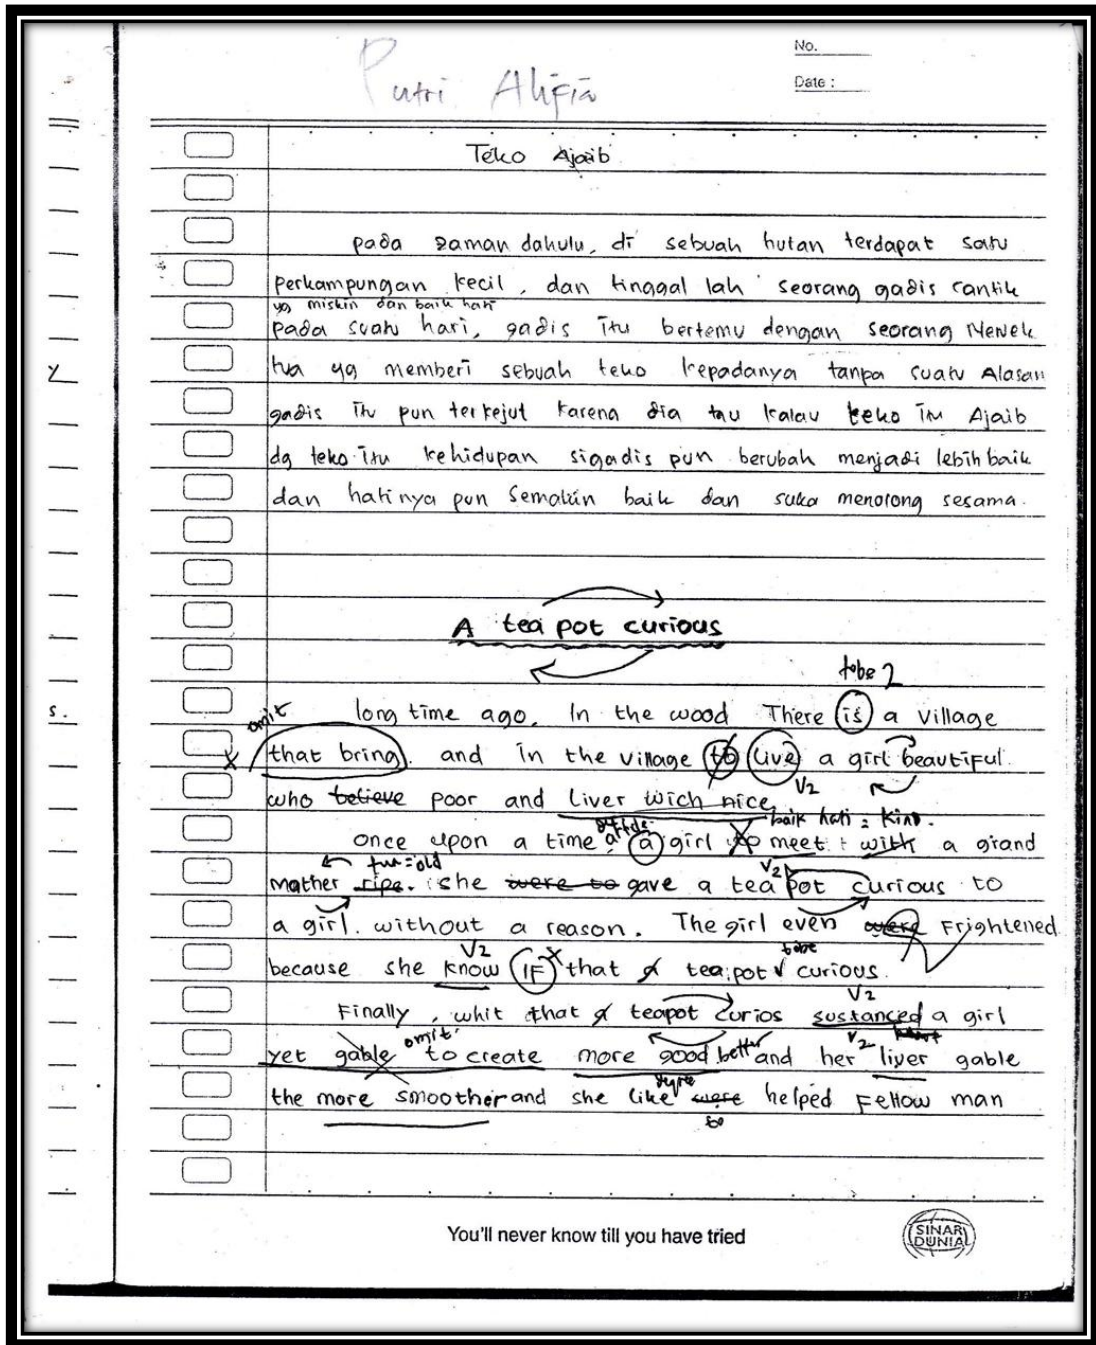 No.
Putri Alifia
Date :
Teko Ajaib
pada zaman dahulu, di sebuah hutan terdapat satu
perkampungan kecil, dan tinggal lah seorang gadis cantik
yg miskin dan baik hati
pada suatu hari, gadis itu bertemu dengan seorang Nenek
tua yg memberi sebuah teko kepadanya tanpa suatu Alasan
gadis itu pun terkejut karena dia tau kalau teko itu Ajaib
dg teko itu kehidupan sigadis pun berubah menjadi lebih baik
dan hatinya pun semakin baik dan suka menolong sesama.
A tea pot curious
tobe 2
long time ago. In the wood There is a village
omit
that bring. and in the village to live a girl beautiful.
V2
who believe poor and liver wich nice.
baik hati = kind.
once upon a time a girl to meet with a grand
tua = old V2
mother ripe. she were to gave a tea pot curious to
a girl. without a reason. The girl even were Frightened
V2 x tobe
because she know IF that a tea pot curious.
V2
Finally, whit that a teapot curios sustanced a girl
omit V2
yet gable to create more good better and her liver gable
the more smoother and she like were helped Fellow man
to
You'll never know till you have tried
SINAR DUNIA
Y
s.